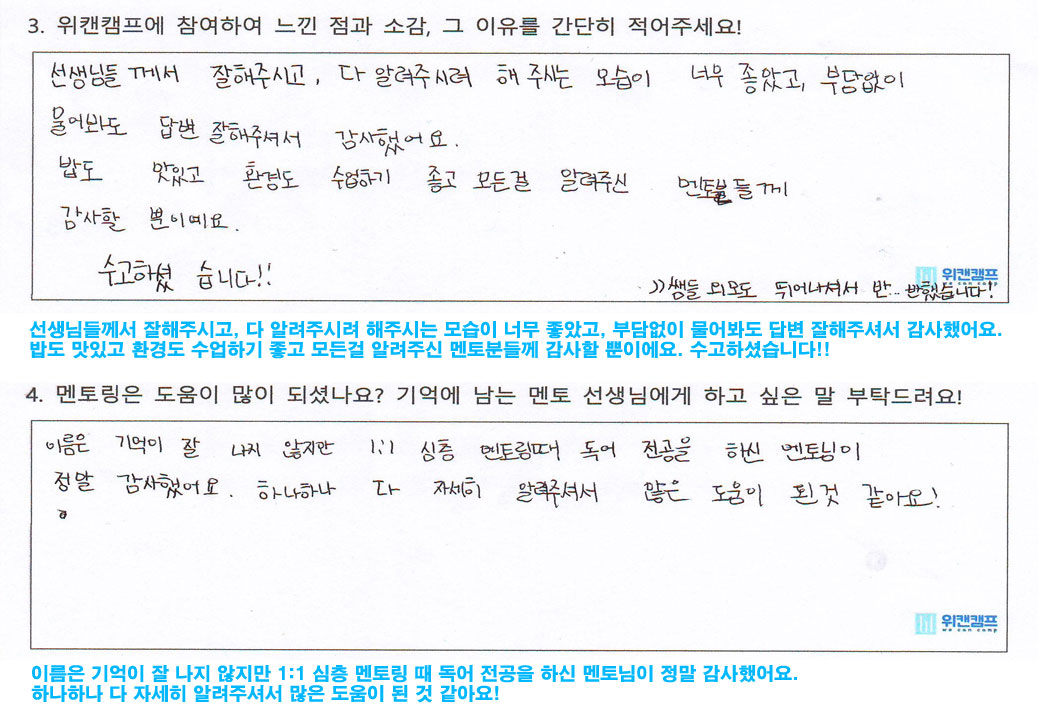 3. 위캔캠프에 참여하여 느낀 점과 소감, 그 이유를 간단히 적어주세요!
선생님들께서 잘해주시고, 다 알려주시려 해 주시는 모습이 너무 좋았고, 부담없이
물어봐도 답변 잘해주셔서 감사했어요.
밥도 맛있고 환경도 수업하기 좋고 모든걸 알려주신 멘토분들께
감사할 뿐이예요.
수고하셨습니다!!
위캔캠프
we can camp
>> 쌤들 외모도 뛰어나셔서 반.. 반했습니다!
선생님들께서 잘해주시고, 다 알려주시려 해주시는 모습이 너무 좋았고, 부담없이 물어봐도 답변 잘해주셔서 감사했어요.
밥도 맛있고 환경도 수업하기 좋고 모든걸 알려주신 멘토분들께 감사할 뿐이에요. 수고하셨습니다!!
4. 멘토링은 도움이 많이 되셨나요? 기억에 남는 멘토 선생님에게 하고 싶은 말 부탁드려요!
이름은 기억이 잘 나지 않지만 1:1 심층 멘토링때 독어 전공을 하신 멘토님이
정말 감사했어요. 하나하나 다 자세히 알려주셔서 많은 도움이 된것 같아요!
위캔캠프
we can camp
이름은 기억이 잘 나지 않지만 1:1 심층 멘토링 때 독어 전공을 하신 멘토님이 정말 감사했어요.
하나하나 다 자세히 알려주셔서 많은 도움이 된 것 같아요!